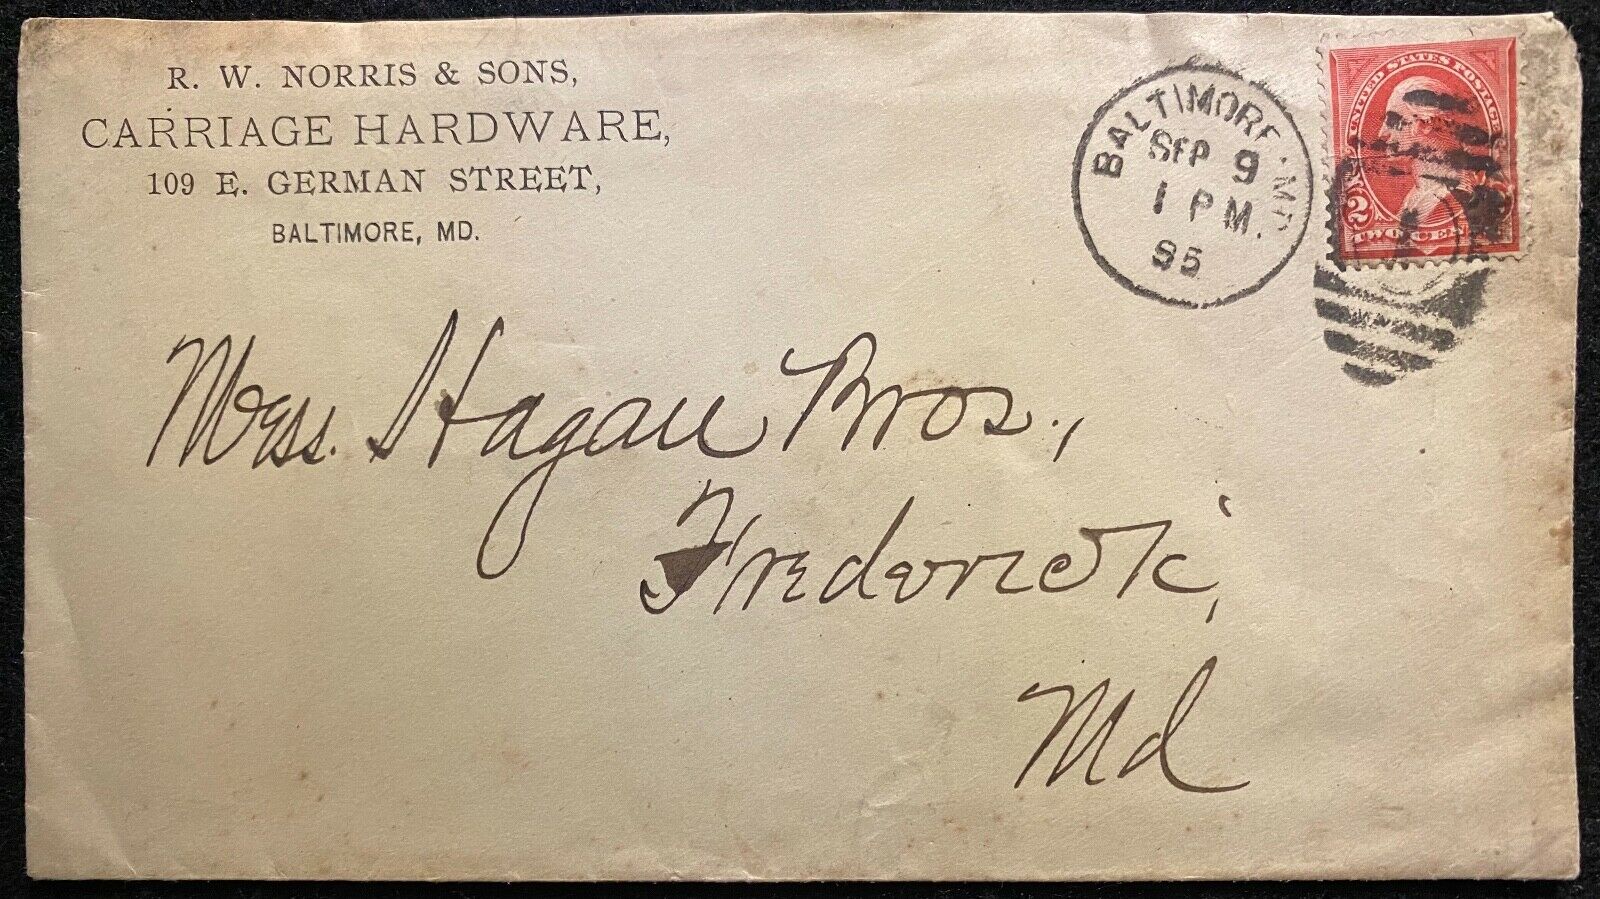 R. W. NORRIS & SONS,
CARRIAGE HARDWARE,
109 E. GERMAN STREET,
BALTIMORE, MD.
BALTIMORE. MD.
SEP 9
1 PM.
95
UNITED STATES POSTAGE
2
TWO CEN
Mess. Hagan Bros.,
Frederick,
Md